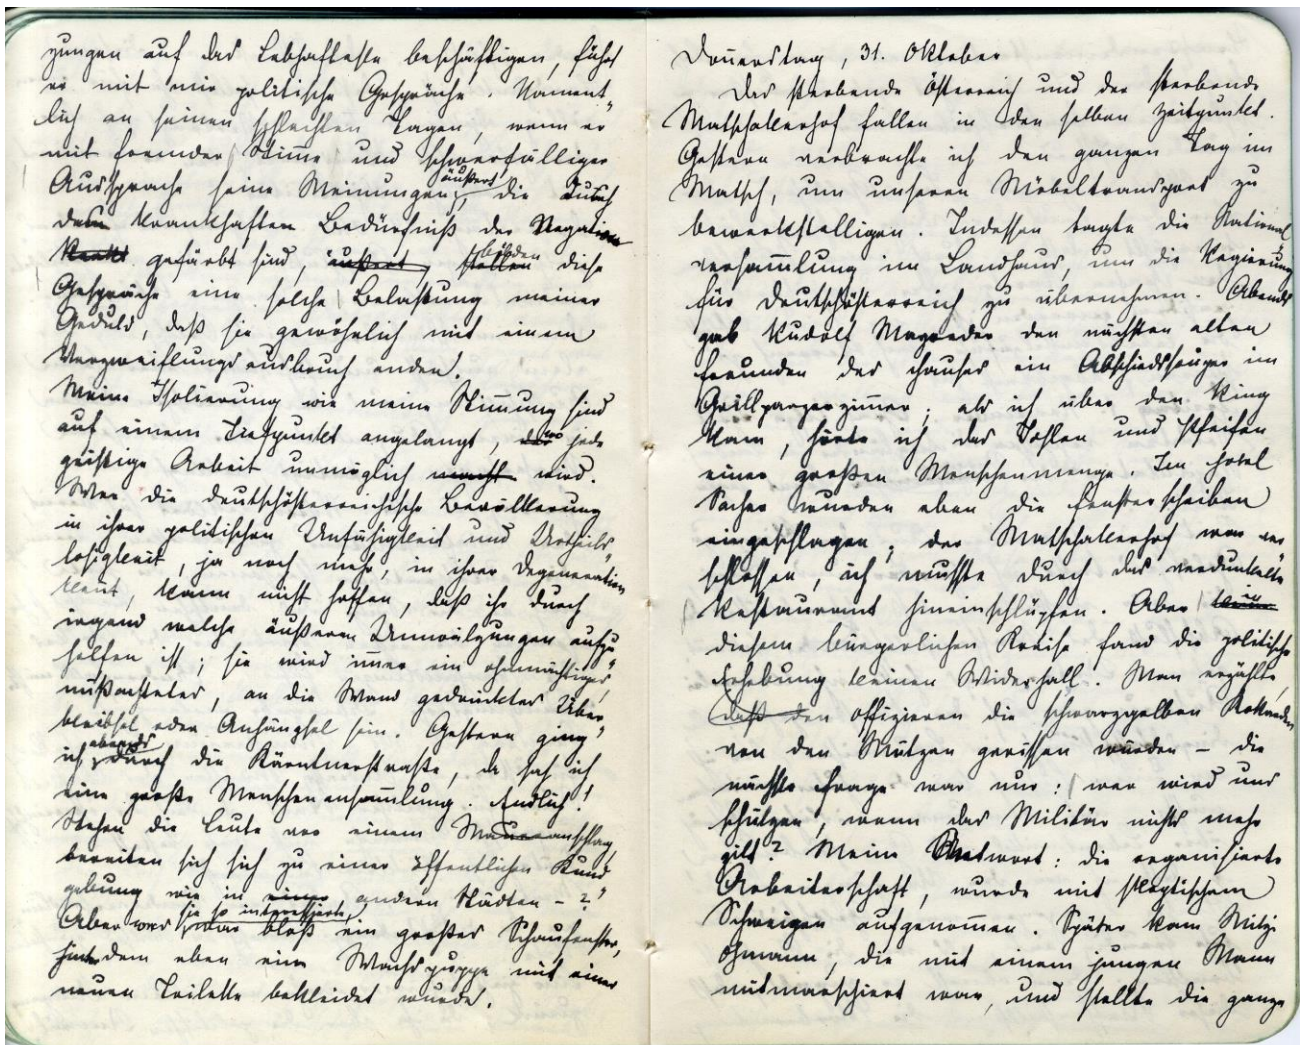 zungen auf das Lebhafteste beschäftigen, führt
er mit mir politische Gespräche. Nament-
lich an seinen schlechten Tagen, wenn er
mit fremder Stimme und schwerfälliger
Aussprache seine Meinungen äußert, die durch
das krankhaften Bedürfniß der Negation
gefärbt sind, äußert, stellen bilden diese
Gespräche eine solche Belastung meiner
Geduld, daß sie gewöhnlich mit einem
Verzweiflungsausbruch enden.
Meine Isolierung wie meine Stimmung sind
auf einem Tiefpunkt angelangt, wo jede
geistige Arbeit unmöglich macht wird.
Wer die deutschösterreichische Bevölkerung
in ihrer politischen Unfähigkeit und Urtheils-
losigkeit, ja noch mehr, in ihrer Degeneration
kennt, kann nicht hoffen, daß ihr durch
irgend welche äußeren Umwälzungen aufzu-
helfen ist; sie wird immer ein ohnmächtiges,
mißachtetes, an die Wand gedrücktes Über-
bleibsel oder Anhängsel sein. Gestern ging
ich abends durch die Kärntnerstraße, da sah ich
eine große Menschenansammlung. Endlich!
Stehen die Leute vor einem Maueranschlag,
bereiten sich sich zu einer öffentlichen Kund-
gebung wie in einer andern Städten – ?
Aber was sie so interessierte, war bloß ein großer Schaufenster,
hinter dem eben eine Wachspuppe mit einer
neuen Toilette bekleidet wurde.
Donnerstag, 31. Oktober
Das sterbende Österreich und der sterbende
Matschakerhof fallen in den selben Zeitpunkt.
Gestern verbrachte ich den ganzen Tag im
Matsch, um unseren Möbeltransport zu
bewerkstelligen. Indessen tagte die National-
versammlung im Landhaus, um die Regierung
für Deutschösterreich zu übernehmen. Abends
gab Rudolf Mayreder den nächsten alten
Freunden des Hauses ein Abschiedssouper im
Grillparzerzimmer; als ich über den Ring
kam, hörte ich das Johlen und Pfeifen
einer großen Menschenmenge. Im Hotel
Sacher wurden eben die Fensterscheiben
eingeschlagen; der Matschakerhof war ver-
schlossen, ich mußte durch das verdunkelte
Restaurant hineinschlüpfen. Aber in
diesem bürgerlichen Kreise fand die politische
Erhebung keinen Widerhall. Man erzählte,
daß den Offizieren die schwarzgelben Kokarden
von den Mützen gerissen wurden – die
nächste Frage war nur: wer wird uns
schützen, wenn das Militär nichts mehr
gilt? Meine Antwort: die organisierte
Arbeiterschaft, wurde mit skeptischem
Schweigen aufgenommen. Später kam Mitzi
Ohmann, die mit einem jungen Mann
mitmarschiert war, und stellte die ganze